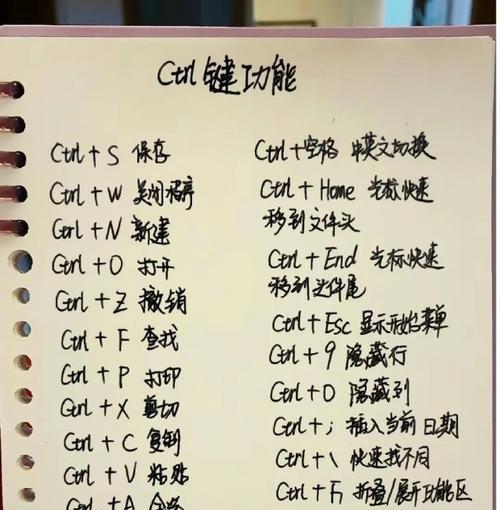 Ctrl键功能
Ctrl + S 保存
Ctrl + W 关闭程序
Ctrl + N 新建
Ctrl + O 打开
Ctrl + Z 撤销
Ctrl + F 查找
Ctrl + P 打印
Ctrl + X 剪切
Ctrl + C 复制
Ctrl + V 粘贴
Ctrl + A
Ctrl + 空格 中英文切换
Ctrl + Home 光标快速
移到文件头
Ctrl + End 光标快速
移到文件尾
Ctrl + Esc 显示开始菜单
Ctrl + 9 隐藏行
Ctrl + 0 隐藏列
Ctrl + ; 插入当前日期
Ctrl + \ 快速找不同
Ctrl + F1 折叠/展开功能区